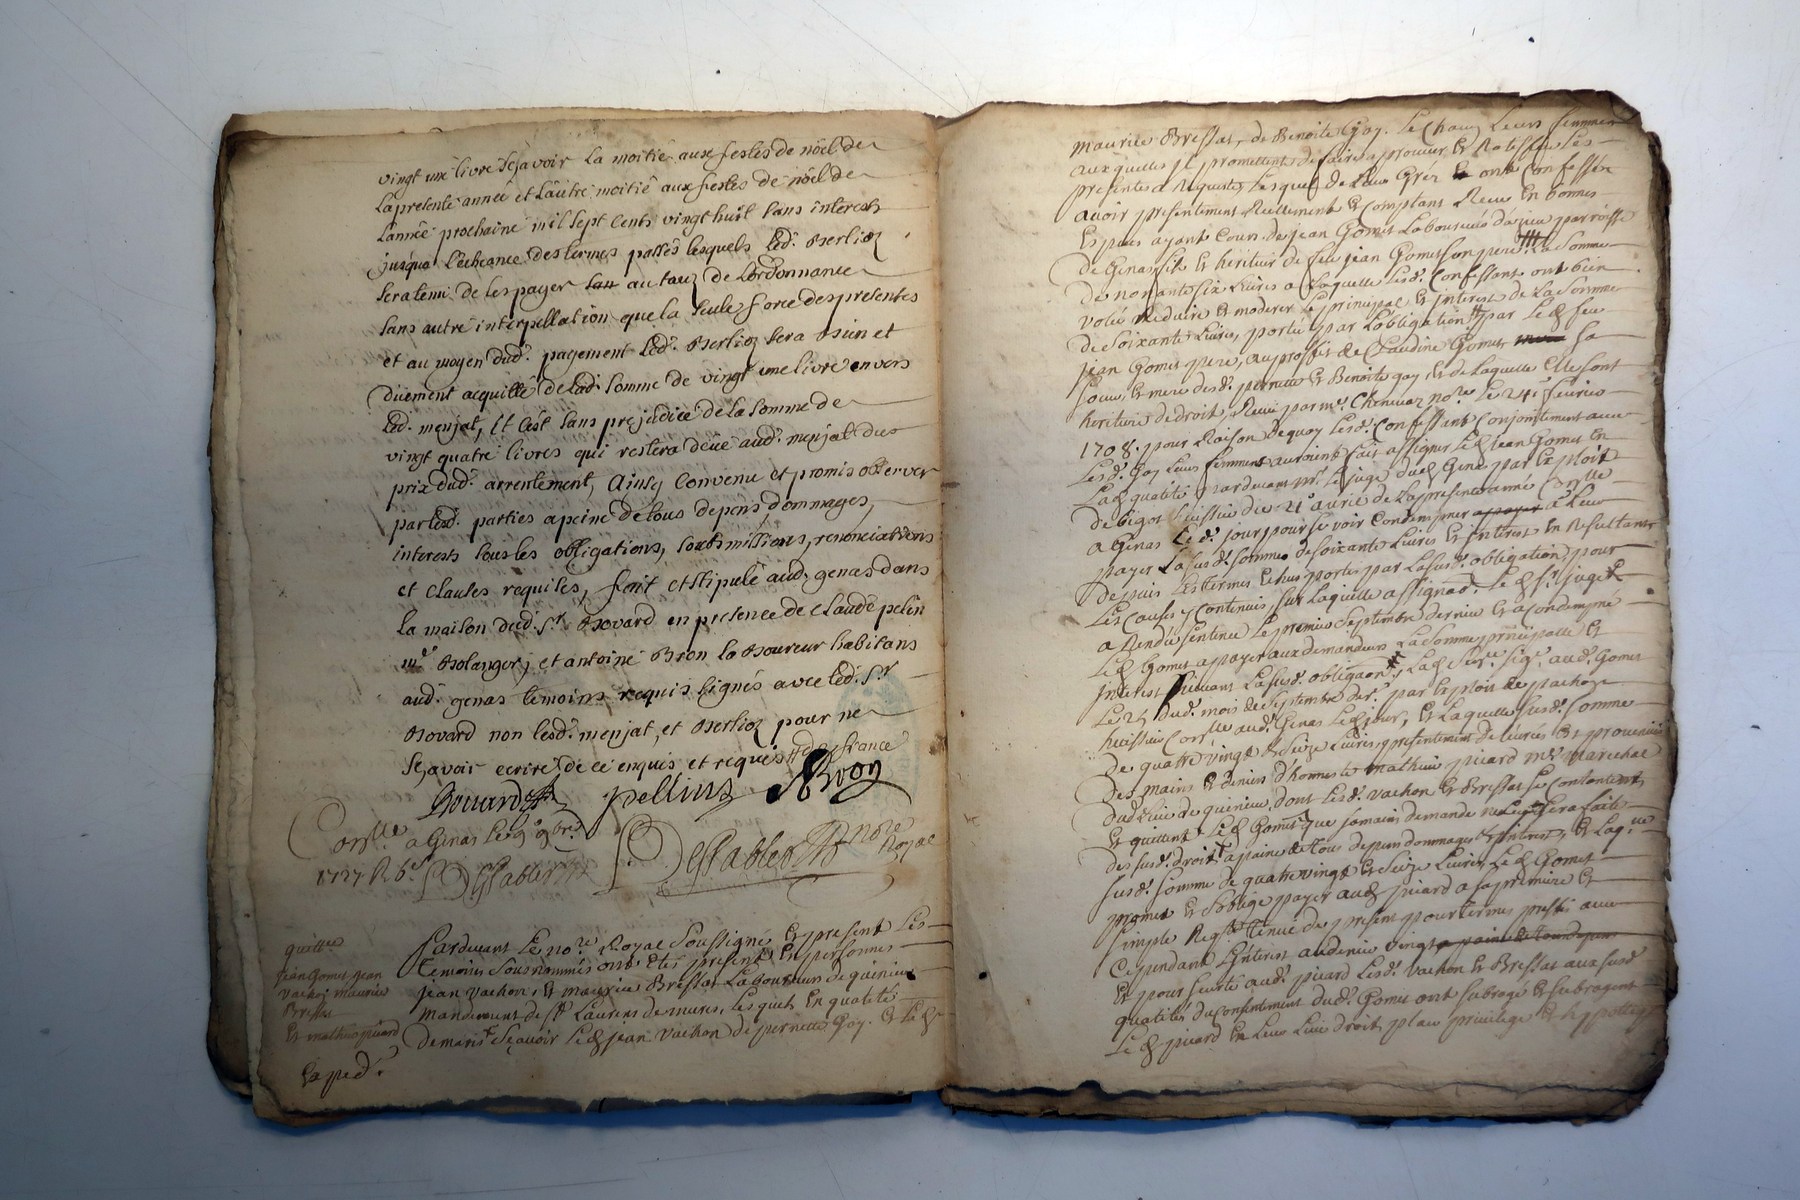 vingt une livre sçavoir la moitié aux festes de nöel de
la presente année et l'autre moitié aux festes de nöel de
l'année prochaine mil sept cents vingt huit sans interests
jusqua l'echeance des termes passés lesquels led. Berlioz
sera tenu de les payer au taux de l'ordonnance
sans autre interpellation que la seule force des presentes
et au moyen dud. payement led. Berlioz sera bien et
duement acquitté de lad. somme de vingt une livre envers
led. menjat, et c'est sans prejudice de la somme de
vingt quatre livres qui restera deüe aud. menjat du
prix dud. arrentement, Ainsy convenu et promis observer
par lesd. parties a peine de tous depens dommages,
interests sous les obligations, soubmissions, renonciations
et clauses requises, fait et stipulé aud. genas dans
la maison dud. Sr. Bovard en presence de claude pelin
me. Bolanger, et antoine Bron laboureur habitans
aud. genas temoins requis signés avec led. Sr
Bovard non lesd. menjat, et Berlioz pour ne
sçavoir ecrire de ce enquis et requis
Bouard pellin A Bron
Corlle. a Genas le 9e 9bre
1727 R 6s DesSables DesSables nore Royal
quittce
Jean Gomet jean
vachon maurice
Bressat
Et mathieu picard
Expéd.
Pardevant Le nore. Royal Soussigné Et present Les
temoins Sousnommés ont Etés presents En personnes
jean vachon, Et maurice Bressat Laboureurs de quirieu
mandement de St. Laurens de mures, Lesquels En qualité
de maris Sçavoir Led jean vachon de pernette Goy. Et Led
maurice Bressat, de Benoite Goy. Leurs femmes
auxquelles jl promettent de faire aprouver Et Ratiffier Les
presentes a Requeste, Lesquels de Leur Grez ont Confessé
avoir presentement Reellement Et Comptant Receu En bonnes
Especes ayant Cours de jean Gomet Laboureur parroisse
de Genas fils Et heritier de feu jean Gomet son pere La Somme
de nonante six Livres a Laquelle Lesd. Confessants ont bien
voulu Reduire Et moderer Le principal Et jnterest de La Somme
de Soixante Livres, portée par L'obligation par Led feu
jean Gomet pere, au proffit de Claudine Gomet Sa
Soeur Et mere desd. pernette Et Benoite goy, Et de Laquelle Elle sont
heritiere de droit, Receu par me. Chenevaz nore. Le 24e fevrier
1708. pour Raison de quoy Lesd. Confessants Conjointement avec
Lesd. Goy Leurs femmes auroient fait assigner Led jean Gomet En
La d qualité pardevant Mr. Le juge dud Genas par Exploit
de bigot huissier du 21e avril de La presente année Corlle
a Genas Le d. jour pour se voir Condempner a Leur
payer La susd. Somme de soixante Livres Et jnterest En Resultants
depuis Les termes Echus portés par La susd. obligation, pour
Les Causes y Contenues, Sur Laquelle assignaon. Led Sr. juge
a Rendu Sentence Le premier Septembre dernier Et a Condempné
Led Gomet a payer aux demandeurs La Somme principalle Et
jnterest suivant La susd. obligaon., La d Sence. Sige. aud. Gomet
Le 25 dud. mois de Septembre der. par Exploit de pachoz
huissier Corlle aud. Genas Led jour, Et Laquelle susd. Somme
de quatre vingt Et Seize Livres presentement delivrés Et provenus
des mains Et deniers d'honneste mathieu picard me. Marechal
dud Lieu de quirieu, dont Lesd. vachon Et Bressat se Contentent
Et quittent Led Gomet que jamais demande ne Sera faite
des susd. droits a peine de tous depens dommages Et jnterest, Et Laqlle
susd. Somme de quatre vingt Et Seize Livres, Led Gomet
promet Et S'oblige payer aud picard a Sa premiere Et
simple Reqte. tenue de present pour termes prefix avec
Cependant L'jnterest au denier vingt a peine de tous depens
Et pour Seurté aud. picard Lesd. vachon Et Bressat aux susd
qualités du consentement dud. Gomet ont Subrogé Et Subrogent
Led picard En Leur Lieu droit, place privilege Et hypotteque